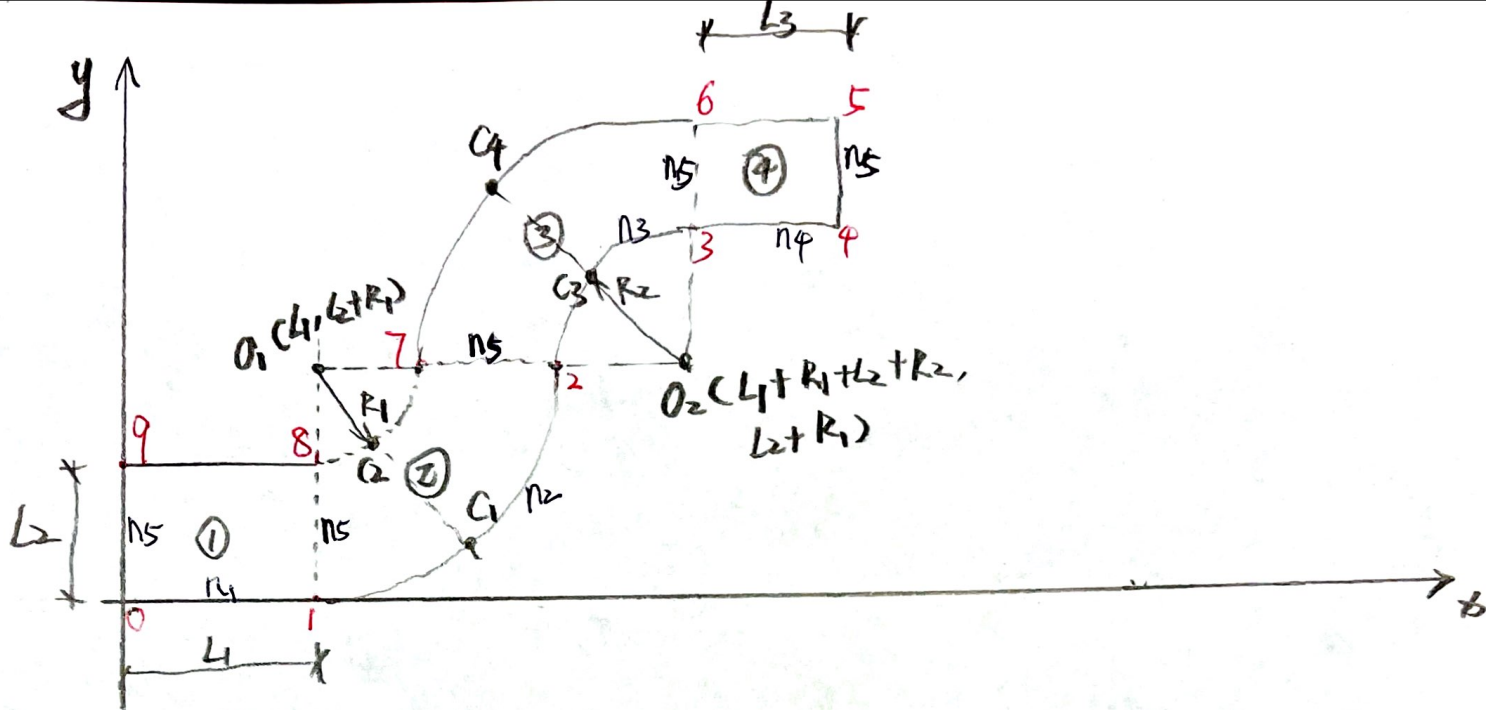 L3
y
6
5
C4
n5
④
n5
③
n3
3
n4
4
C3
R2
O₁(L1, L2+R1)
7
n5
2
O₂(L1+R1+L2+R2,
L2+R1)
R1
9
8
C2
②
L2
n5
①
n5
C1
n2
n1
0
1
x
L1